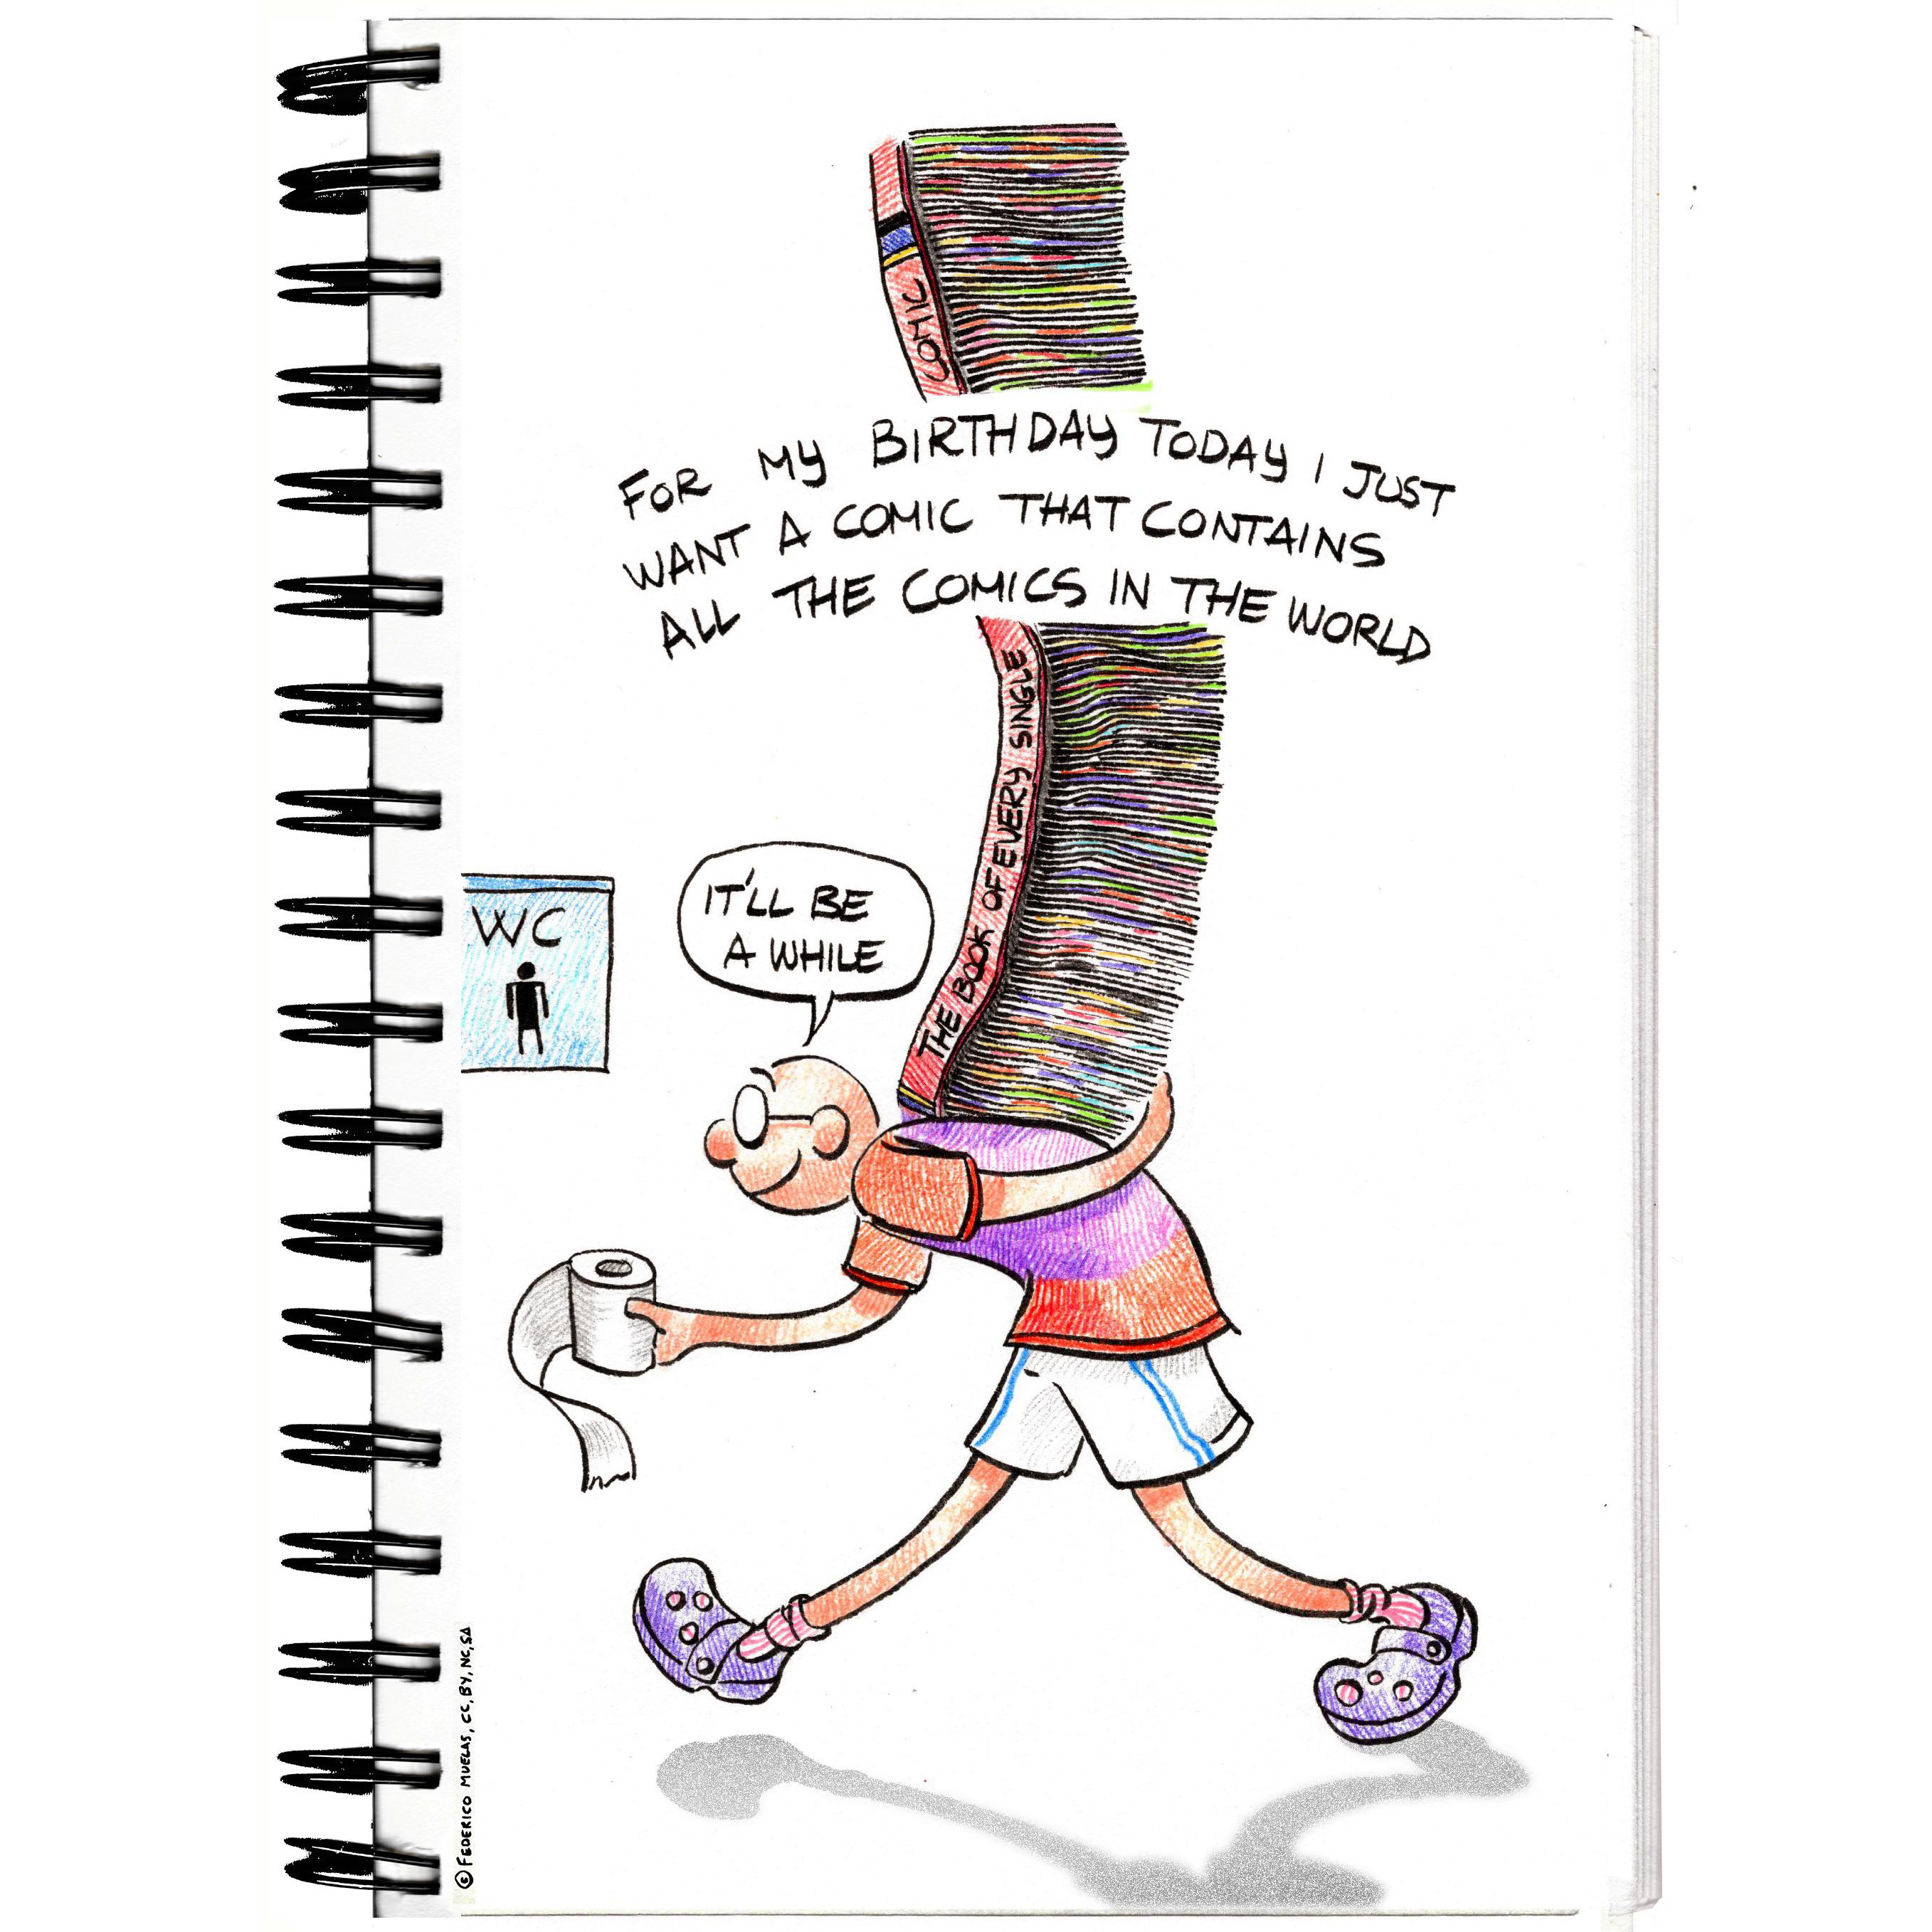 COMIC
FOR MY BIRTHDAY TODAY I JUST
WANT A COMIC THAT CONTAINS
ALL THE COMICS IN THE WORLD
THE BOOK OF EVERY SINGLE
IT'LL BE
A WHILE
WC
© FEDERICO MUELAS, CC, BY, NC, SA